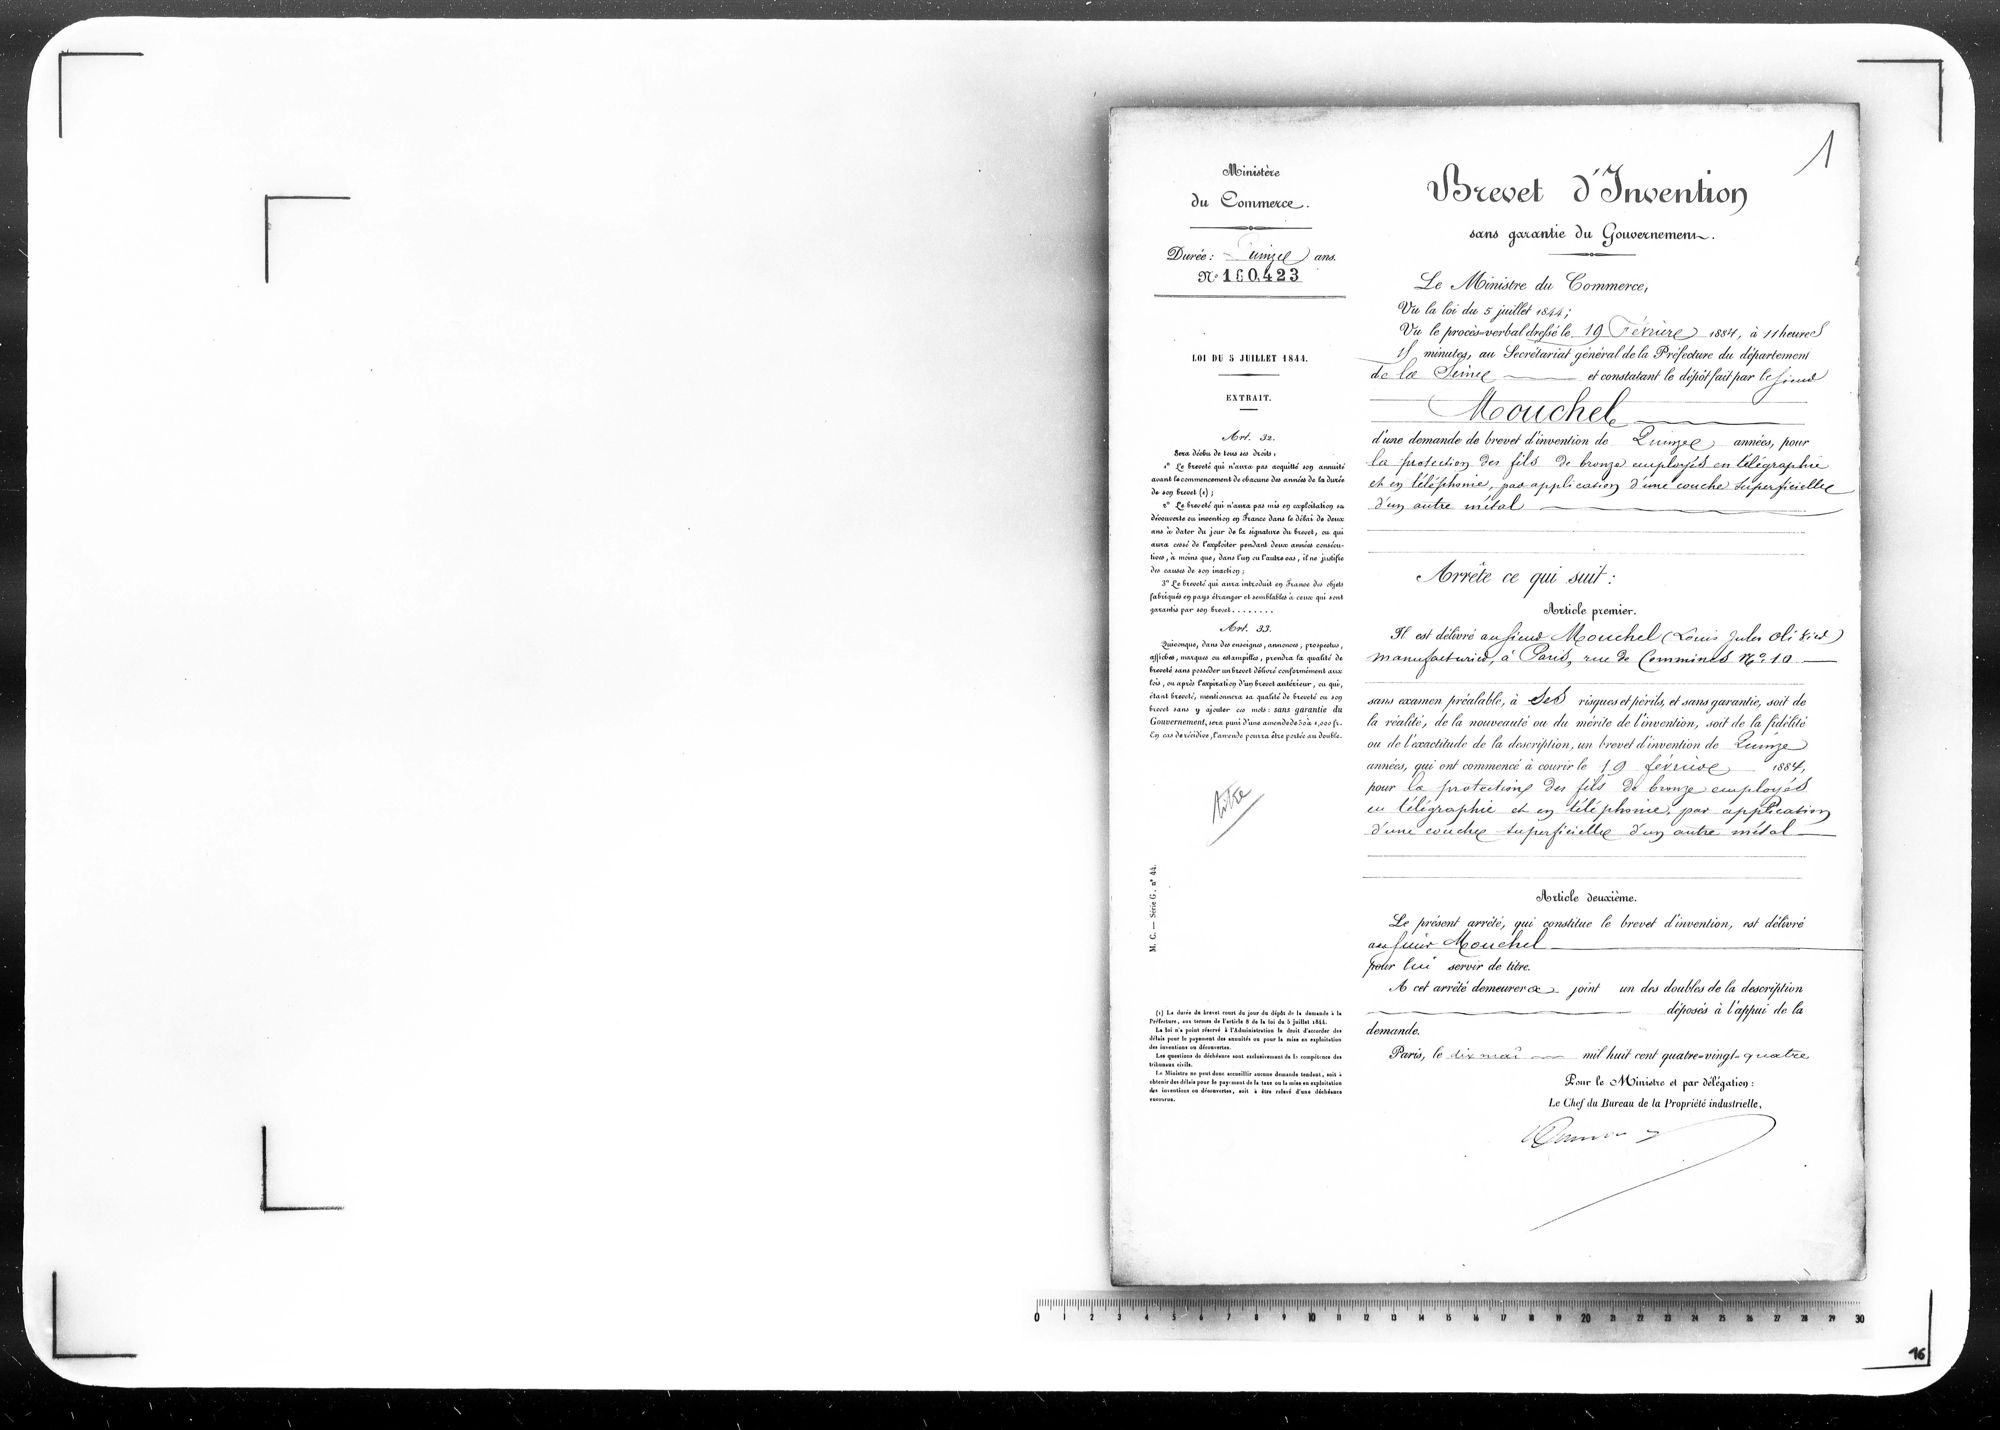 1
Ministère
du Commerce.
Durée: Quinze ans.
N° 160,423
LOI DU 5 JUILLET 1844.
EXTRAIT.
Art. 32.
Sera déchu de tous ses droits:
1° Le breveté qui n'aura pas acquitté son annuité
avant le commencement de chacune des années de la durée
de son brevet (1);
2° Le breveté qui n'aura pas mis en exploitation sa
découverte ou invention en France dans le délai de deux
ans à dater du jour de la signature du brevet, ou qui
aura cessé de l'exploiter pendant deux années consécu-
tives, à moins que, dans l'un ou l'autre cas, il ne justifie
des causes de son inaction;
3° Le breveté qui aura introduit en France des objets
fabriqués en pays étranger et semblables à ceux qui sont
garantis par son brevet........
Art. 33.
Quiconque, dans des enseignes, annonces, prospectus,
affiches, marques ou estampilles, prendra la qualité de
breveté sans posséder un brevet délivré conformément aux
lois, ou après l'expiration d'un brevet antérieur, ou qui,
étant breveté, mentionnera sa qualité de breveté ou son
brevet sans y ajouter ces mots: sans garantie du
Gouvernement, sera puni d'une amende de 50 à 1,000 fr.
En cas de récidive, l'amende pourra être portée au double.
titre
M. C. — Série G. n° 44.
(1) La durée du brevet court du jour du dépôt de la demande à la
Préfecture, aux termes de l'article 8 de la loi du 5 juillet 1844.
La loi n'a point réservé à l'Administration le droit d'accorder des
délais pour le payement des annuités ou pour la mise en exploitation
des inventions ou découvertes.
Les questions de déchéance sont exclusivement de la compétence des
tribunaux civils.
Le Ministre ne peut donc accueillir aucune demande tendant, soit à
obtenir des délais pour le payement de la taxe ou la mise en exploitation
des inventions ou découvertes, soit à être relevé d'une déchéance
encourue.
Brevet d'Invention
sans garantie du Gouvernement.
Le Ministre du Commerce,
Vu la loi du 5 juillet 1844;
Vu le procès-verbal dressé le 19 Février 1884, à 11 heures
minutes, au Secrétariat général de la Préfecture du département
de la Seine et constatant le dépôt fait par le sieur
Mouchel
d'une demande de brevet d'invention de Quinze années, pour
la protection des fils de bronze employés en télégraphie
et en téléphonie, par application d'une couche superficielle
d'un autre métal
Arrête ce qui suit:
Article premier.
Il est délivré au sieur Mouchel (Louis Jules
manufacturier, à Paris, rue de Commines N° 10
sans examen préalable, à ses risques et périls, et sans garantie, soit de
la réalité, de la nouveauté ou du mérite de l'invention, soit de la fidélité
ou de l'exactitude de la description, un brevet d'invention de Quinze
années, qui ont commencé à courir le 19 février 1884,
pour la protection des fils de bronze employés
en télégraphie et en téléphonie, par application
d'une couche superficielle d'un autre métal
Article deuxième.
Le présent arrêté, qui constitue le brevet d'invention, est délivré
au sieur Mouchel
pour lui servir de titre.
A cet arrêté demeurera joint un des doubles de la description
déposés à l'appui de la
demande.
Paris, le dix mai mil huit cent quatre-vingt-quatre
Pour le Ministre et par délégation:
Le Chef du Bureau de la Propriété industrielle,
0 1 2 3 4 5 6 7 8 9 10 11 12 13 14 15 16 17 18 19 20 21 22 23 24 25 26 27 28 29 30
16